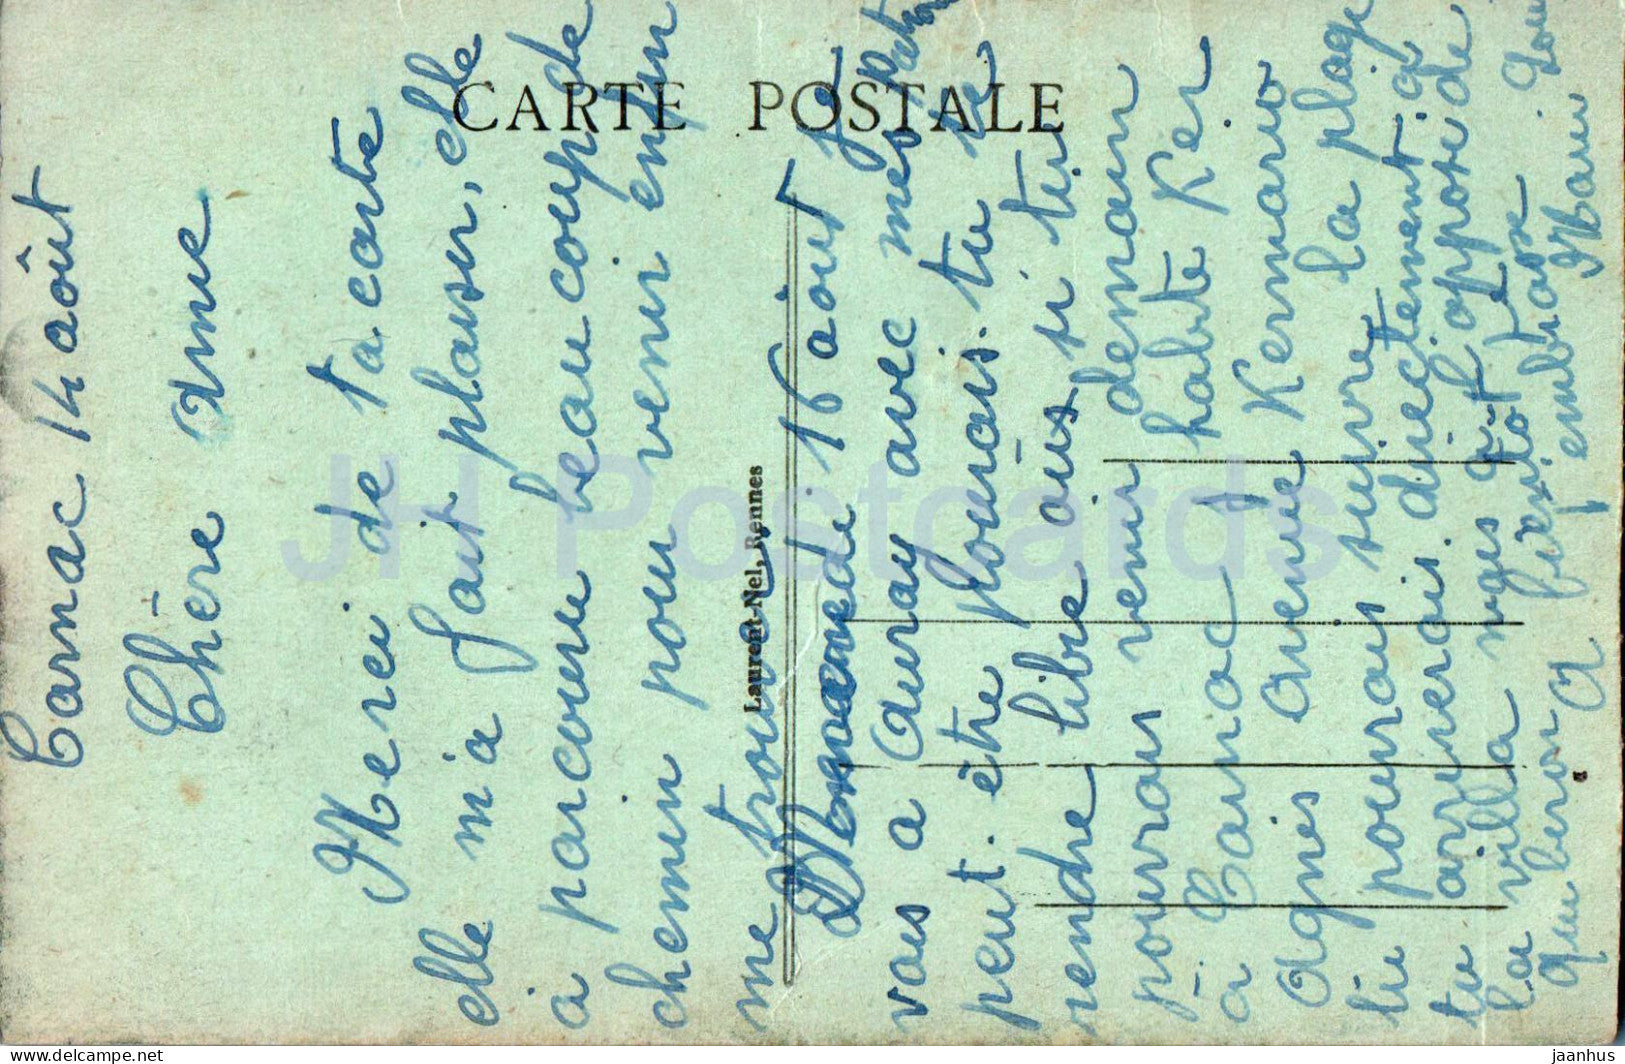 CARTE POSTALE
Laurent-Nel, Rennes
Carnac 14 août
Chère amie
Merci de ta carte
elle m'a fait plaisir, elle
à parcouru beaucoup de
chemin pour venir enfin
me trouver
16 aout je
vais a Auray avec mes patrons
peut. être flounais. tu te
rendre libre aüssi si tu
pourrais venir demain
à Carnac j habite Ker
Agnès avenue Kermario
tu pourrais suivre la plage
tu arriverais directement a
la villa a l opposé de
Quiberon bientôt je
embrasse
JH Postcards
www.delcampe.net
jaanhus